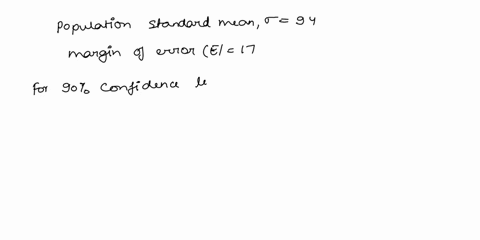 Population standard mean, σ = 94
margin of error (E) = 17
for 90% confidence le